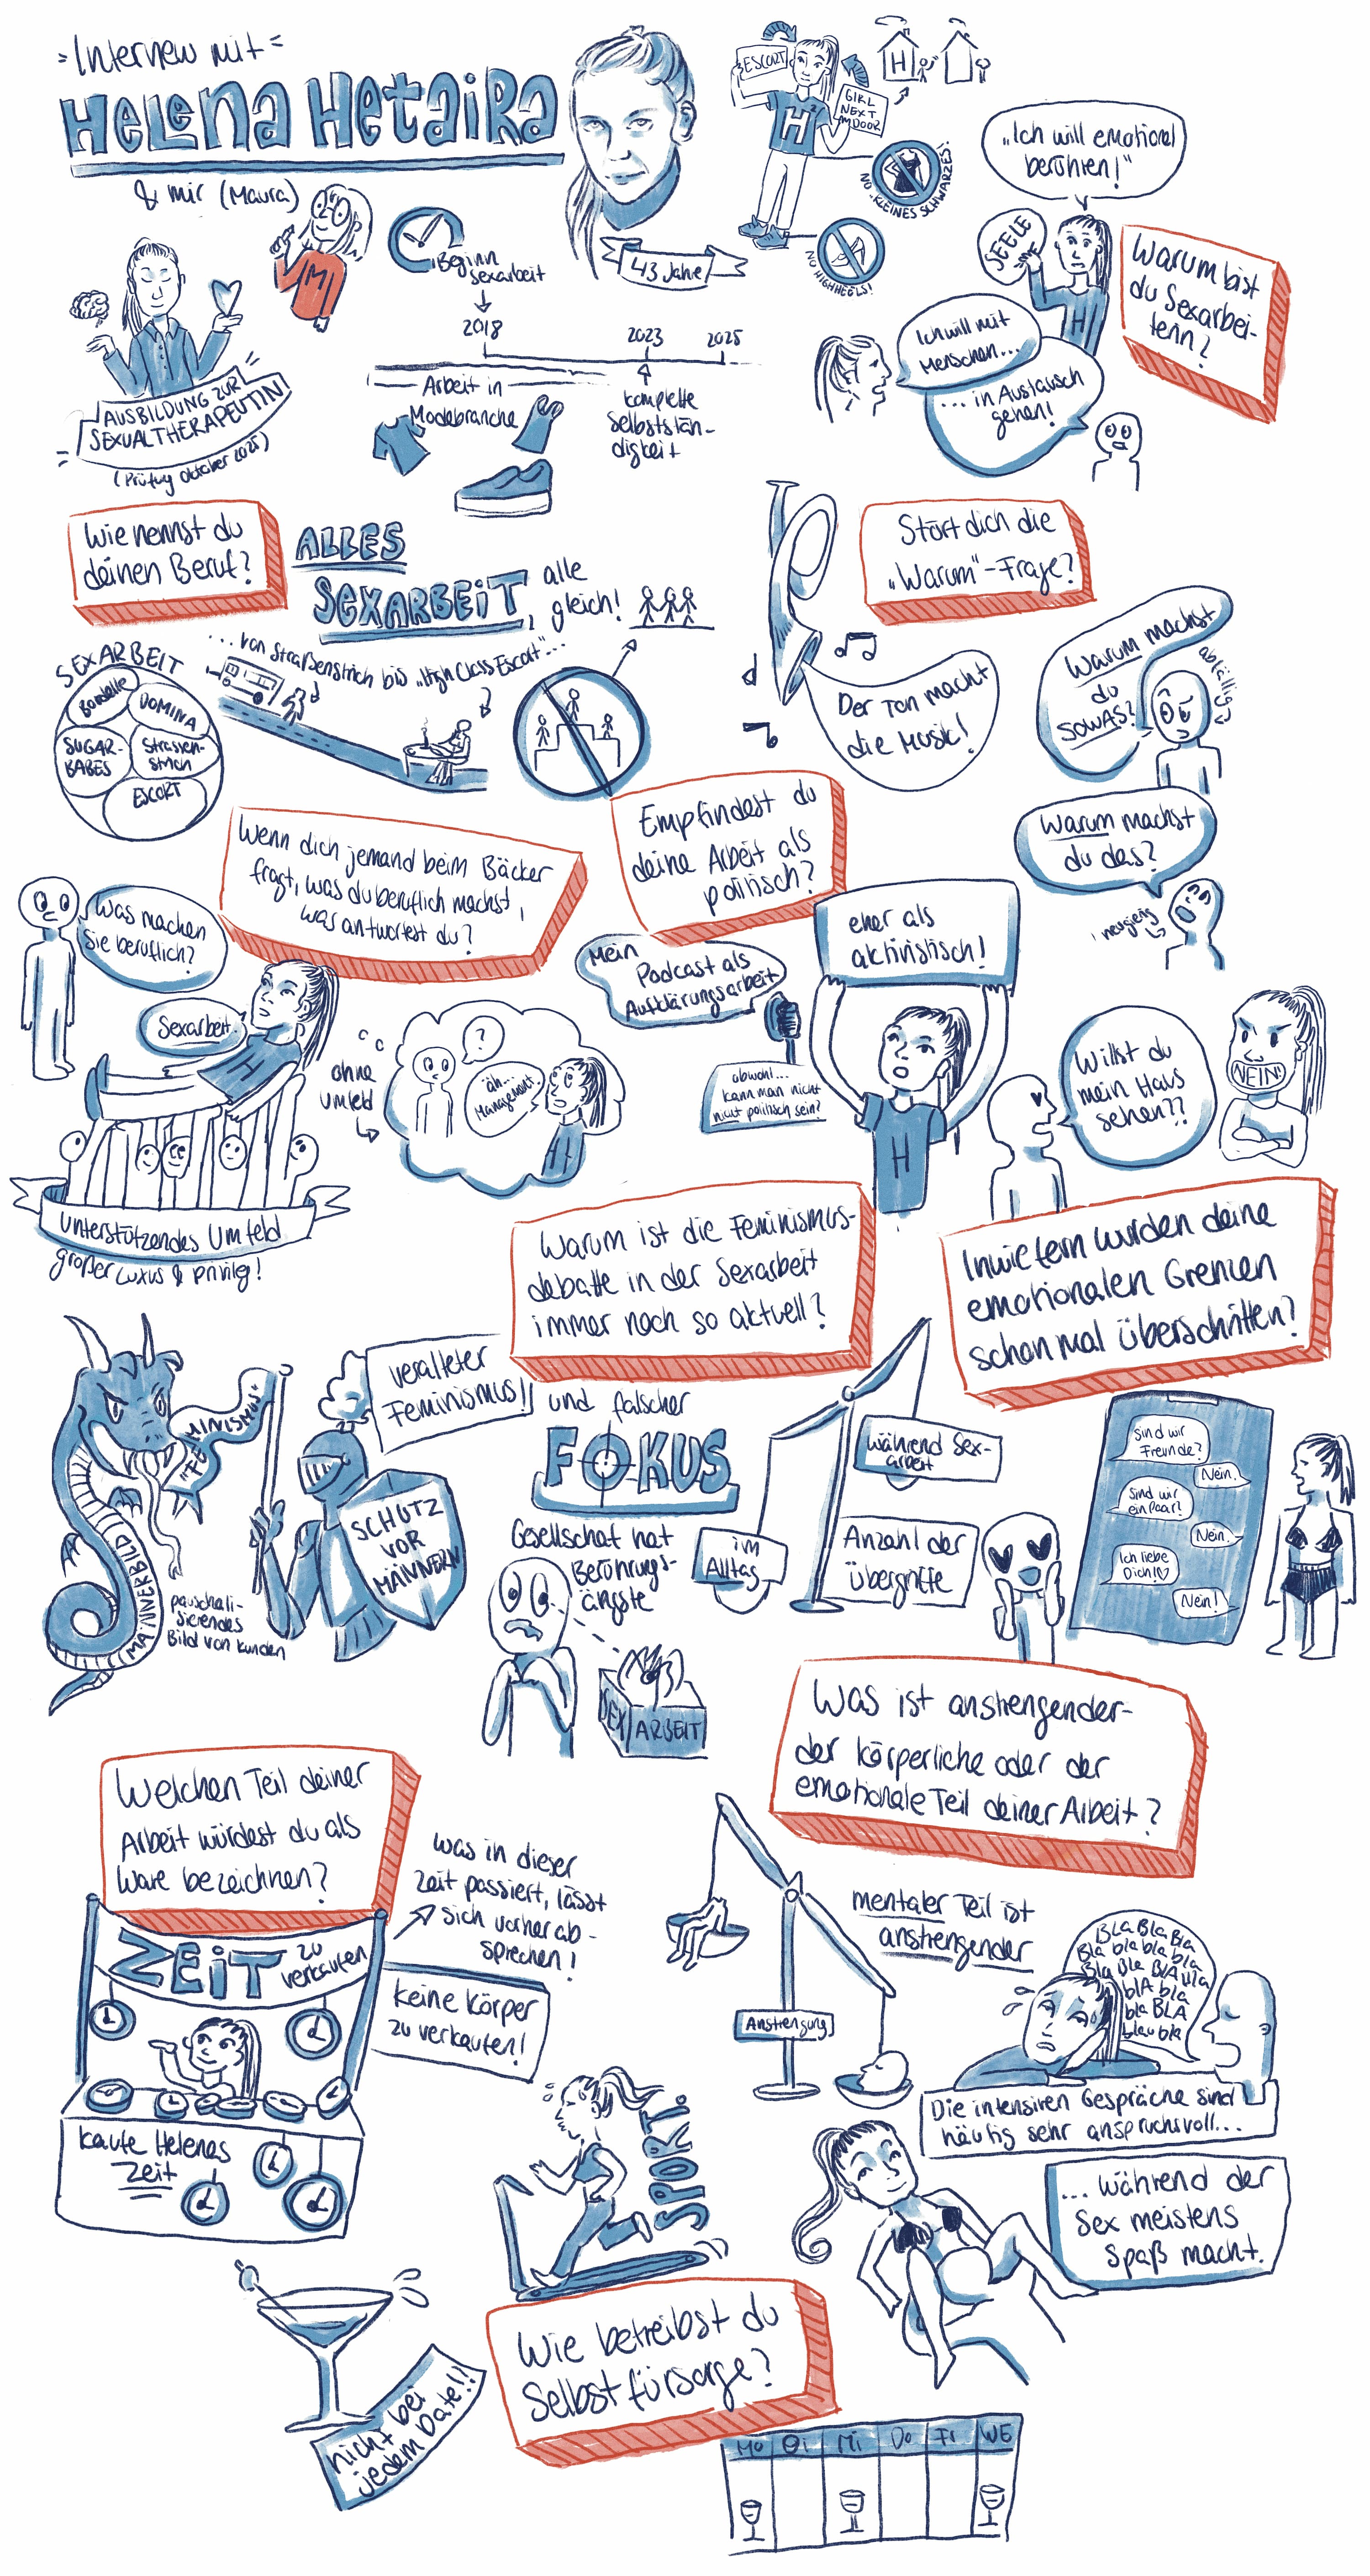 Interview mit
Helena Hetaira
& mir (Maura)
M
43 Jahre
ESCORT
GIRL
NEXT
DOOR
H
H
NO „KLEINES SCHWARZES!"
NO HIGHHEELS!
„Ich will emotional
berühren!"
SEELE
H
Warum bist
du Sexarbei-
terin?
Ich will mit
Menschen...
...in Austausch
gehen!
AUSBILDUNG ZUR
SEXUALTHERAPEUTIN
(Prüfung Oktober 2025)
Beginn
Sexarbeit
2018
2023
2025
Arbeit in
Modebranche
komplette
Selbststän-
digkeit
Wie nennst du
deinen Beruf?
ALLES
SEXARBEIT,
alle
gleich!
...von Straßenstrich bis „High Class Escort"...
SEXARBEIT
Bordelle
DOMINA
SUGAR-
BABES
Strassen-
strich
ESCORT
Stört dich die
„Warum"-Frage?
Der Ton macht
die Musik!
Warum machst
du
SOWAS?
abfällig
Warum machst
du das?
neugierig
Wenn dich jemand beim Bäcker
fragt, was du beruflich machst,
was antwortest du?
Was machen
Sie beruflich?
Sexarbeit.
H
ohne
Umfeld
?
äh...
Management.
H
Unterstützendes Umfeld
großer Luxus & Privileg!
Empfindest du
deine Arbeit als
politisch?
eher als
aktivistisch!
Mein
Podcast als
Aufklärungsarbeit
abwohl...
kann man nicht
nicht politisch sein?
H
Willst du
mein Haus
sehen??
NEIN!
Inwiefern wurden deine
emotionalen Grenzen
schon mal überschritten?
Sind wir
Freunde?
Nein.
Sind wir
ein Paar?
Nein.
Ich liebe
Dich!♡
Nein!
Warum ist die Feminismus-
debatte in der Sexarbeit
immer noch so aktuell?
veralteter
Feminismus!!
und falscher
FOKUS
"FEMINISMUS"
MÄNNERBILD
pauschali-
sierendes
Bild von Kunden
SCHUTZ
VOR
MÄNNERN
Gesellschaft hat
Berührungs-
ängste
SEX ARBEIT
während Sex-
arbeit
im
Alltag
Anzahl der
Übergriffe
Was ist anstrengender-
der körperliche oder der
emotionale Teil deiner Arbeit?
mentaler Teil ist
anstrengender
Anstrengung
Bla Bla Bla
Bla bla bla bla
Bla Bla BLA bla
blA bla
bla BLA
blau bla
Die intensiven Gespräche sind
häufig sehr anspruchsvoll...
...während der
Sex meistens
Spaß macht.
Welchen Teil deiner
Arbeit würdest du als
Ware bezeichnen?
ZEIT zu
verkaufen
was in dieser
Zeit passiert, lässt
sich vorher ab-
sprechen!
keine Körper
zu verkaufen!
Kaufe Helenas
Zeit
SPORT.
Wie betreibst du
Selbstfürsorge?
nicht bei
jedem Date!!
Mo Di Mi Do Fr WE